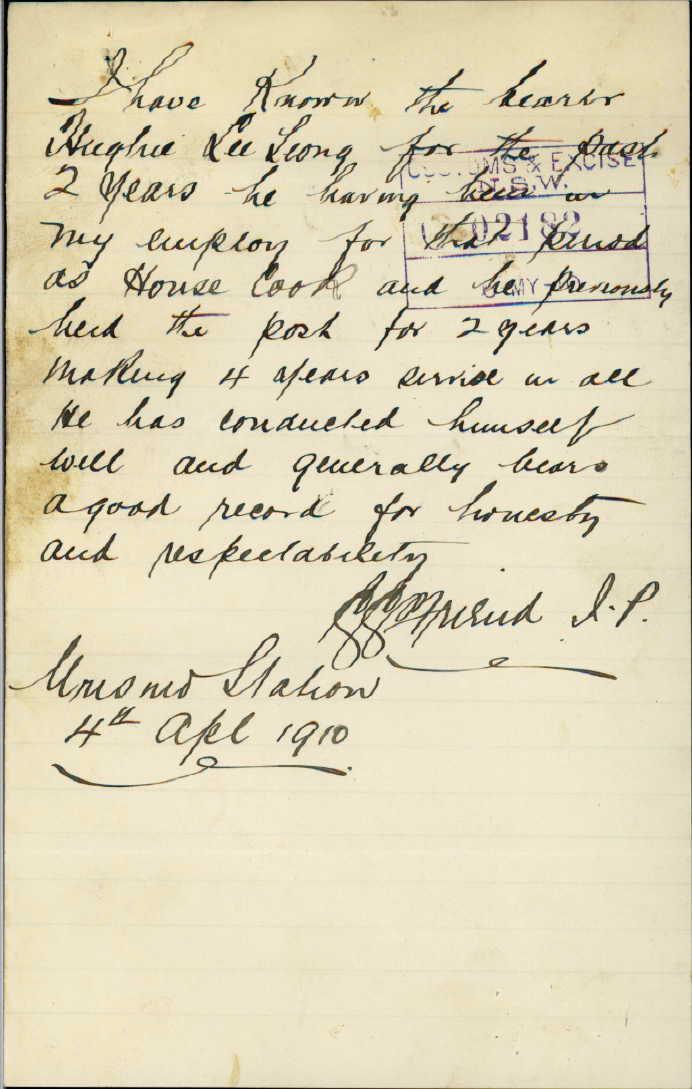 I have Known the bearer
Hughie Lee Leong for the past
CUSTOMS & EXCISE
N.S.W.
2 years he having been in
02182
my employ for that period
as House Cook and he previously
MY
held the post for 2 years
making 4 years service in all
He has conducted himself
well and generally bears
a good record for honesty
and respectability
Friend J.P.
Station
4th Apl 1910